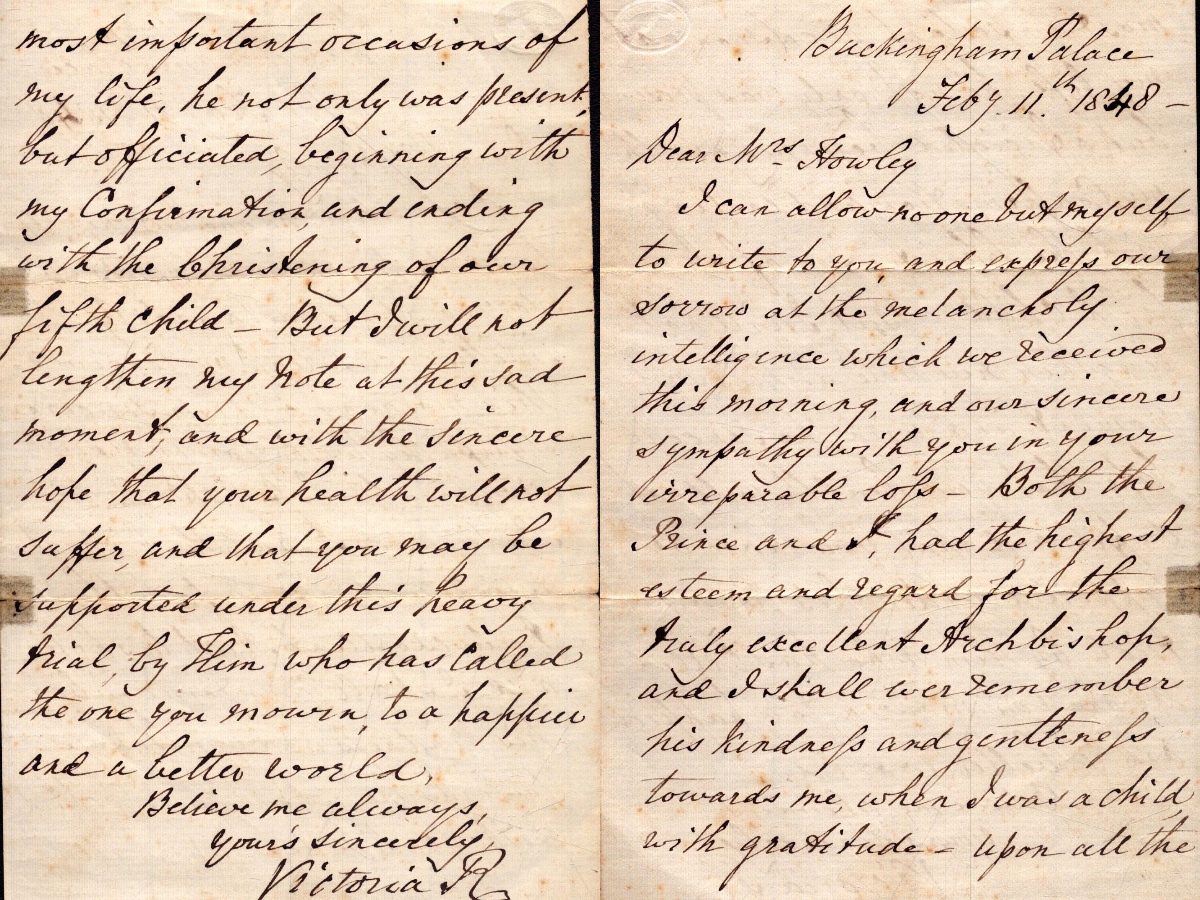 Buckingham Palace
Feby. 11.th 1848 –
Dear Mrs Howley
I can allow no one but myself
to write to you, and expreſs our
sorrow at the melancholy
intelligence which we received
this morning, and our sincere
sympathy with you in your
irreparable loſs – Both the
Prince and I, had the highest
esteem and regard for the
truly excellent Archbishop,
and I shall ever remember
his kindneſs and gentleneſs
towards me, when I was a child,
with gratitude – upon all the
most important occasions of
my life, he not only was present,
but officiated, beginning with
my Confirmation, and ending
with the Christening of our
fifth child – But I will not
lengthen my Note at this sad
moment, and with the sincere
hope that your health will not
suffer, and that you may be
supported under this heavy
trial, by Him who has called
the one you mourn, to a happier
and a better world,
Believe me always,
your's sincerely,
Victoria R